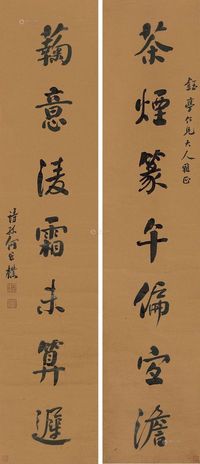 茶煙篆午偏宜澹
鞠意淩霜未算遲
鈺亭仁兄大人雅正
詩孫何維樸